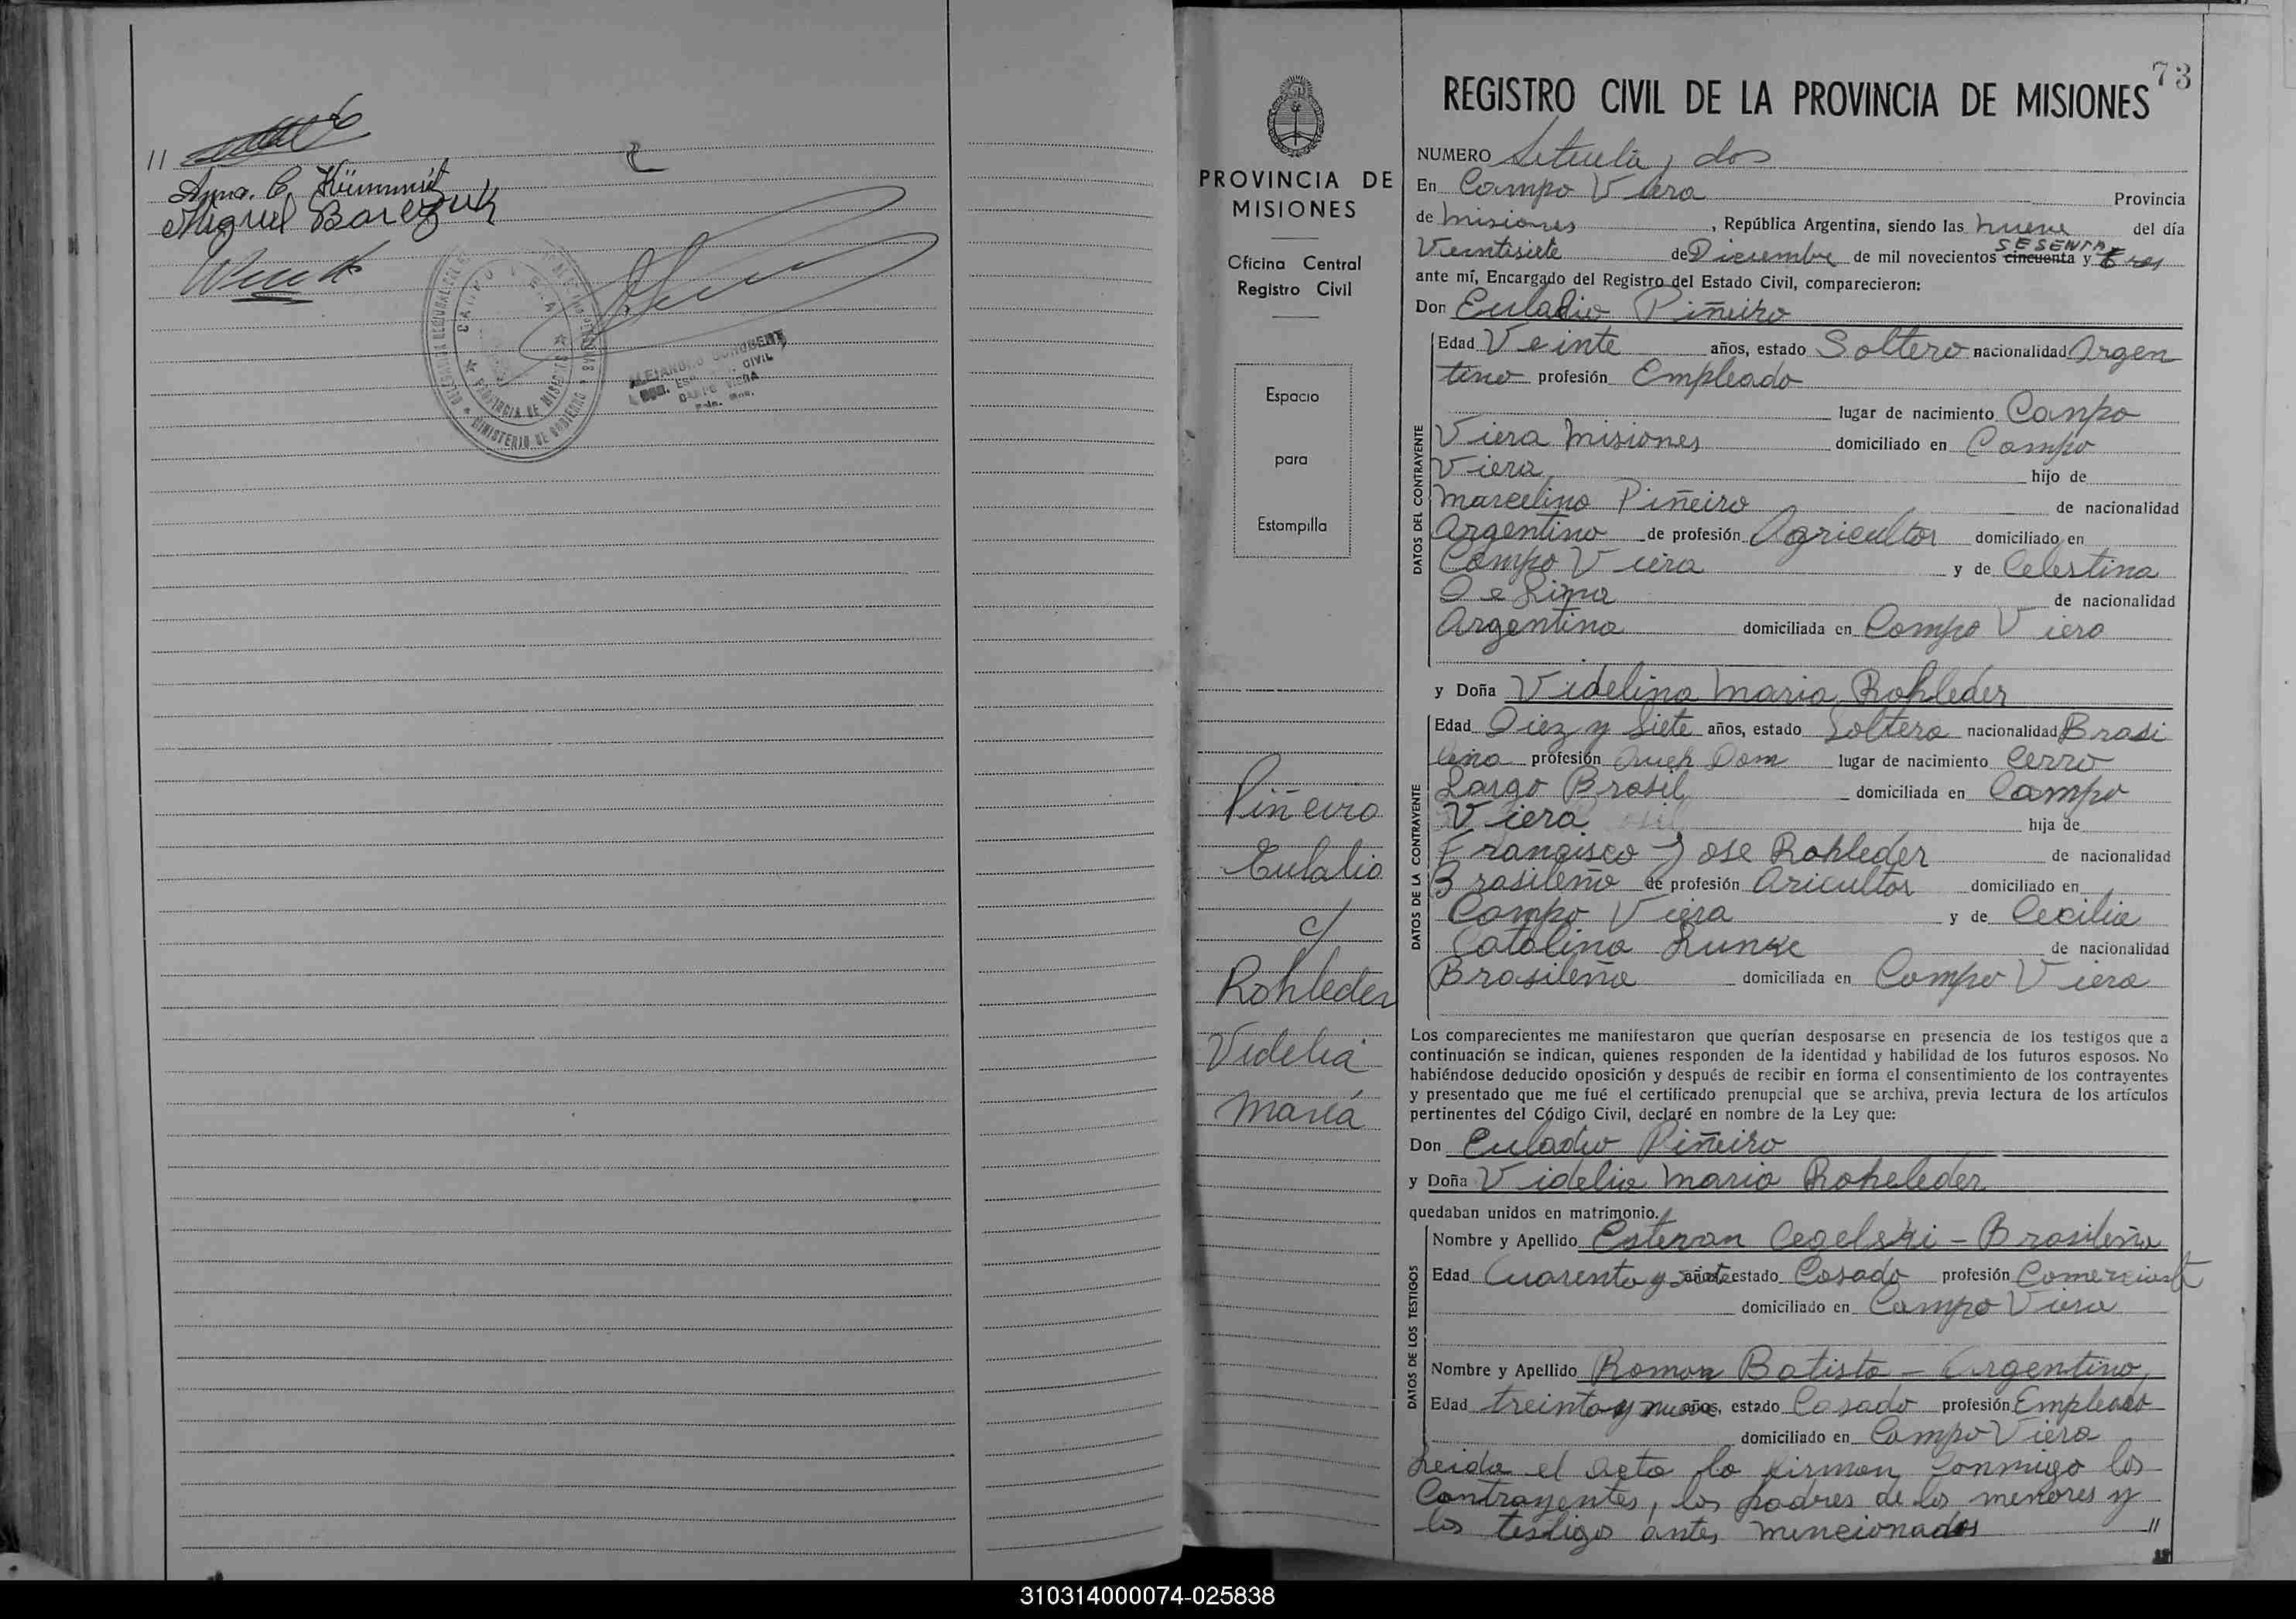 11
Anna. C. Kümmist
Miguel Borezuk
CAMPO VIERA
PROVINCIA DE MISIONES
MINISTERIO DE GOBIERNO
CIVIL
CAMPO VIERA
73
PROVINCIA DE
MISIONES
Oficina Central
Registro Civil
Espacio
para
Estampilla
Piñeiro
Eulalio
c/
Rohleder
Videlia
María
REGISTRO CIVIL DE LA PROVINCIA DE MISIONES
NUMERO Setenta y dos
En Campo Viera Provincia
de Misiones, República Argentina, siendo las nueve del día
SESENTA
Veintisiete de Diciembre de mil novecientos cincuenta y tres
ante mí, Encargado del Registro del Estado Civil, comparecieron:
Don Euladio Piñeiro
DATOS DEL CONTRAYENTE
Edad Veinte años, estado Soltero nacionalidad Argen
tino profesión Empleado
lugar de nacimiento Canpo
Viera Misiones domiciliado en Campo
Viera hijo de
Marcelino Piñeiro de nacionalidad
Argentino de profesión Agricultor domiciliado en
Campo Viera y de Celestina
De Lima de nacionalidad
Argentina domiciliada en Campo Viera
y Doña Videlina Maria Rohleder
DATOS DE LA CONTRAYENTE
Edad Diez y Siete años, estado Soltera nacionalidad Brasi
leña profesión Queh Dom lugar de nacimiento Cerro
Largo Brasil domiciliada en Campo
Viera hija de
Francisco Jose Rohleder de nacionalidad
Brasileño de profesión Aricultor domiciliado en
Campo Viera y de Cecilia
Catalina Runke de nacionalidad
Brasileña domiciliada en Campo Viera
Los comparecientes me manifestaron que querían desposarse en presencia de los testigos que a
continuación se indican, quienes responden de la identidad y habilidad de los futuros esposos. No
habiéndose deducido oposición y después de recibir en forma el consentimiento de los contrayentes
y presentado que me fué el certificado prenupcial que se archiva, previa lectura de los artículos
pertinentes del Código Civil, declaré en nombre de la Ley que:
Don Euladio Piñeiro
y Doña Videlia Maria Roheleder
quedaban unidos en matrimonio.
DATOS DE LOS TESTIGOS
Nombre y Apellido Estevan Cegelski - Brasileño
Edad Cuarenta y siete años estado Casado profesión Comerciant
domiciliado en Campo Viera
Nombre y Apellido Roman Batista - Argentino
Edad treinta y nueve años, estado Casado profesión Empleado
domiciliado en Campo Viera
Leida el acta la firman conmigo los
Contrayentes, los padres de los menores y
los testigos antes mencionados //
310314000074-025838